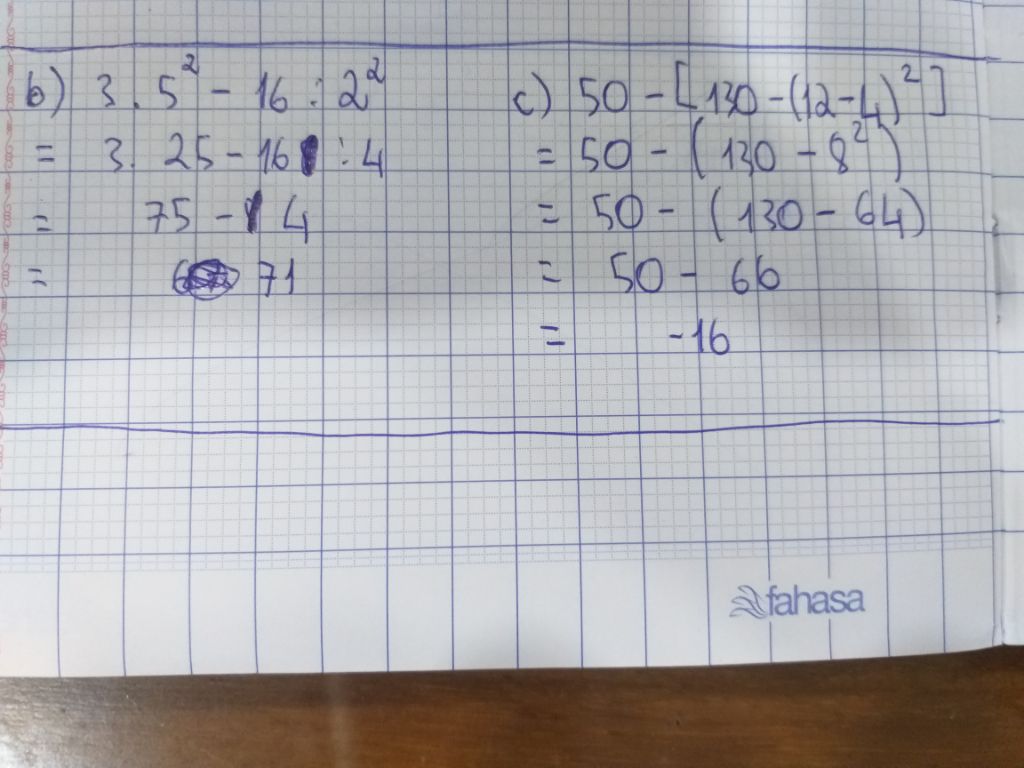 b) 3 . 5² - 16 : 2²
= 3. 25 - 16 : 4
= 75 - 4
= 71
c) 50 - [130 - (12 - 4)²]
= 50 - (130 - 8²)
= 50 - (130 - 64)
= 50 - 66
= -16
fahasa